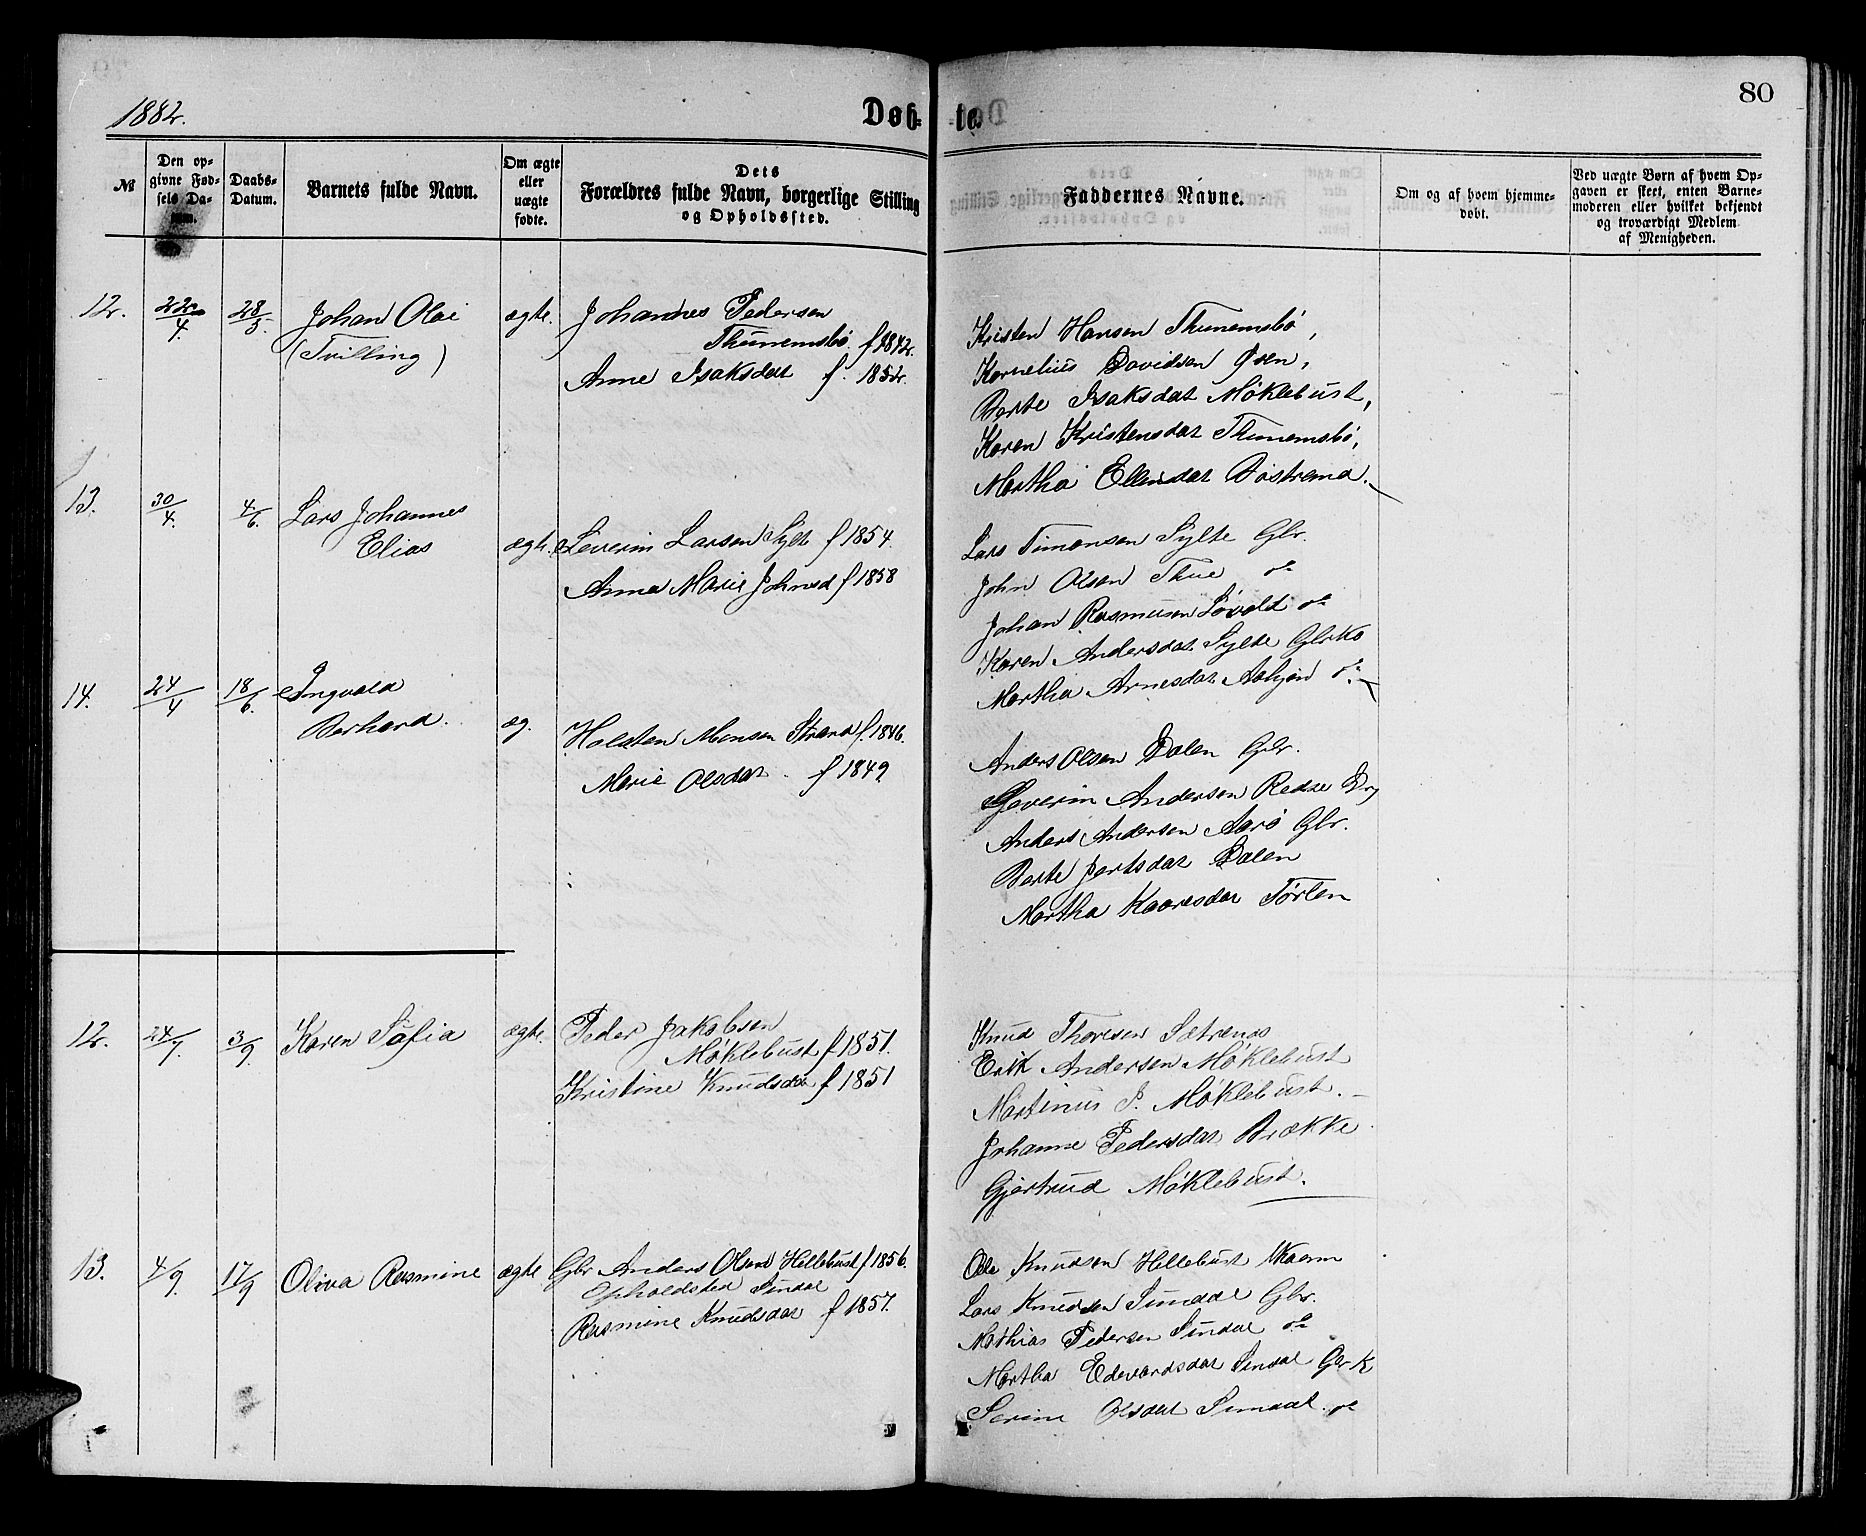 1882.
Døb-
te.
80
№
Den op-
givne Fød-
sels Da-
tum.
Daabs-
Datum.
Barnets fulde Navn.
Om ægte
eller
uægte
fødte.
Dets
Forældres fulde Navn, borgerlige Stilling
og Opholdssted.
Faddernes Navne.
Om og af hvem hjemme-
døbt.
Ved uægte Børn af hvem Op-
gaven er skeet, enten Barne-
moderen eller hvilket bekjendt
og troværdigt Medlem
af Menigheden.
12. 22/4. 28/5. Johan Olai ægte. Johannes Pedersen
(Tvilling) Thunemsbø. f 1842.
Anne Isaksdat f. 1852.
Kristen Hansen Thunemsbø,
Kornelius Davidsen Øien,
Berte Isaksdat Møklebust,
Karen Kristensdat Thunemsbø,
Martha Ellendsdat
13. 30/4. 4/6. Lars Johannes
Elias ægte. Severin Larsen Sylte f 1854.
Anna Marie Johnsd f 1858
Lars Timansen Sylte Gbr.
John Olsen Thue do
Johan Rasmusen Løvold do
Karen Andersdat. Sylte GbrKo
Martha Arnesdat. do
14. 24/4 18/6. Ingvald
Berhard. æg. Holsten Monsen Strand f. 1846.
Marie Olsdat. f 1849.
Anders Olsen Dalen Gbr.
Severin Andersen
Anders Andersen Aarø Gbr.
Berte Jertsdat Dalen
Martha Kaaresdat
12. 24/7. 3/9. Karen Sofia ægte. Peder Jakobsen
Møklebust f 1851.
Kristine Knudsdat f 1851
Knud Thoresen Sætrenes
Erik Andersen Møklebust
Martinus P. Møklebust.
Johanne Pedersdat Brække.
Gjertrud Møklebust.
13. 4/9. 17/9 Oliva Rasmine ægte Gbr Anders Olsen Hellebust f 1856.
Opholdsted Sundal
Rasmine Knudsdat f 1857.
Ole Knudsen Hellebust
Lars Knudsen Sundal Gbr.
Mathias Pedersen Sundal do
Martha Edevardsdat Sundal Gbr K
Serine Olsdat Sundal. do